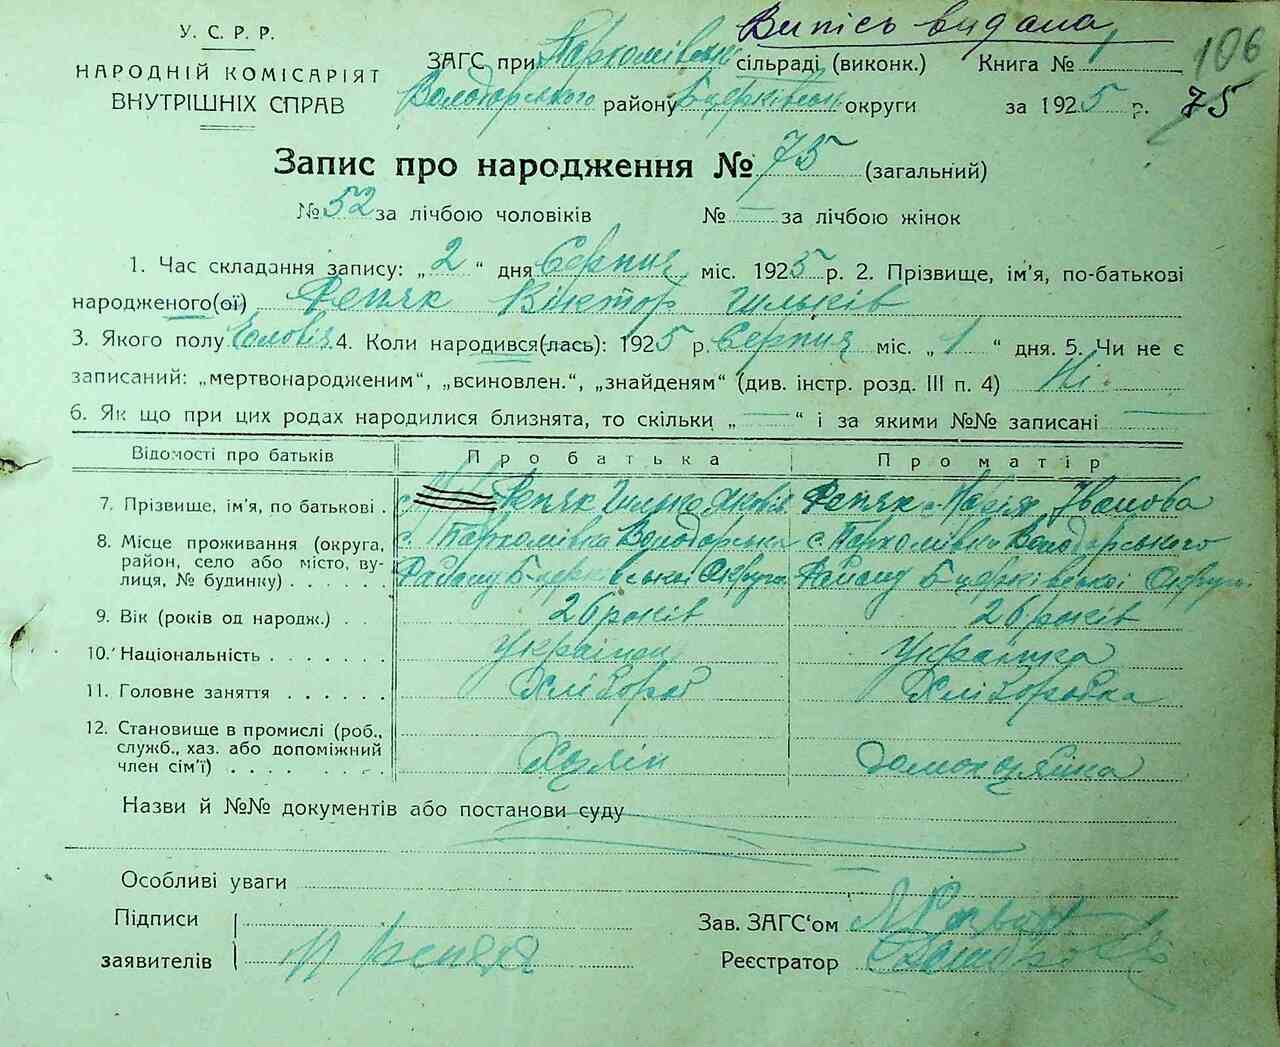 Випісь видана
106
У. С. Р. Р.
НАРОДНІЙ КОМІСАРІЯТ
ВНУТРІШНІХ СПРАВ
ЗАГС при Пархомівськ сільраді (виконк.) Книга № 1
Володарського району Б-церківськ округи за 1925 р. 75
Запис про народження № 75 (загальний)
№ 52 за лічбою чоловіків № — за лічбою жінок
1. Час складання запису: „ 2 “ дня Серпня міс. 1925 р. 2. Прізвище, ім’я, по-батькові
народженого(ої) Репяк Віктор Ільків
3. Якого полу Чоловіч 4. Коли народився(лась): 1925 р. Серпня міс. „ 1 “ дня. 5. Чи не є
записаний: „мертвонародженим“, „всиновлен.“, „знайденям“ (див. інстр. розд. III п. 4) Ні.
6. Як що при цих родах народилися близнята, то скільки „ — “ і за якими №№ записані —
Відомості про батьків Про батька Про матір
7. Прізвище, ім’я, по батькові . Репяк Илько Яковів Репяк Марія Іванова
8. Місце проживання (округа, с. Пархомівка Володарськ с. Пархомівка Володарського
район, село або місто, ву- Району Б-церківської Округи Району Б-церківської Округи
лиця, № будинку) . . . . .
9. Вік (років од народж.) . . 26 років 26 років
10. Національність . . . . . . . Українець Українка
11. Головне заняття . . . . . . Хлібороб Хліборобка
12. Становище в промислі (роб.,
служб., хаз. або допоміжний
член сім’ї) . . . . . . . . Хазяїн Домохазяйка
Назви й №№ документів або постанови суду
Особливі уваги
Підписи Зав. ЗАГС‘ом
заявителів Репяк Реєстратор